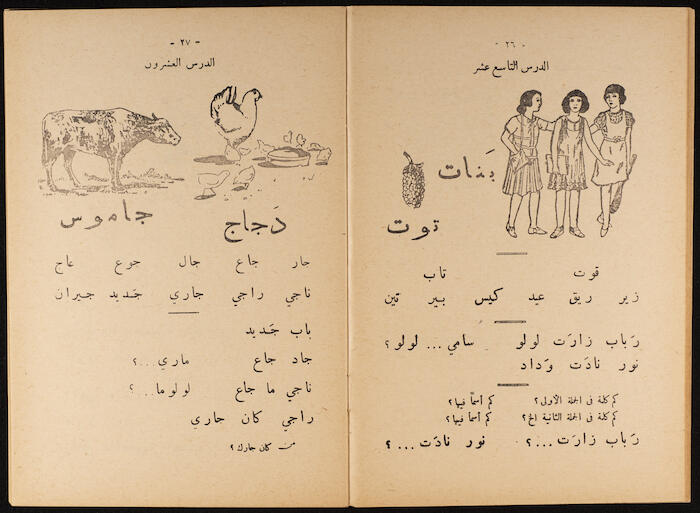 - ٢٦ -
الدرس التاسع عشر
بَنات
توت
قوت تاب
زير ريق عيد كيس بير تين
رَباب زارَت لولو سامي ... لولو ؟
نور نادَت وَداد
كم كلمة فى الجملة الأولى ؟ كم أسماً فيها ؟
كم كلمة فى الجملة الثانية الخ ؟ كم أسماً فيها ؟
رَباب زارَت ... ؟ نور نادَت ... ؟
- ٢٧ -
الدرس العشرون
دَجاج
جاموس
جار جاع جال جوع عاج
ناجي راجي جاري جَديد جيران
باب جَديد
جاد جاع ماري ... ؟
ناجي ما جاع لولو ما ... ؟
راجي كان جاري
من كان جارك ؟